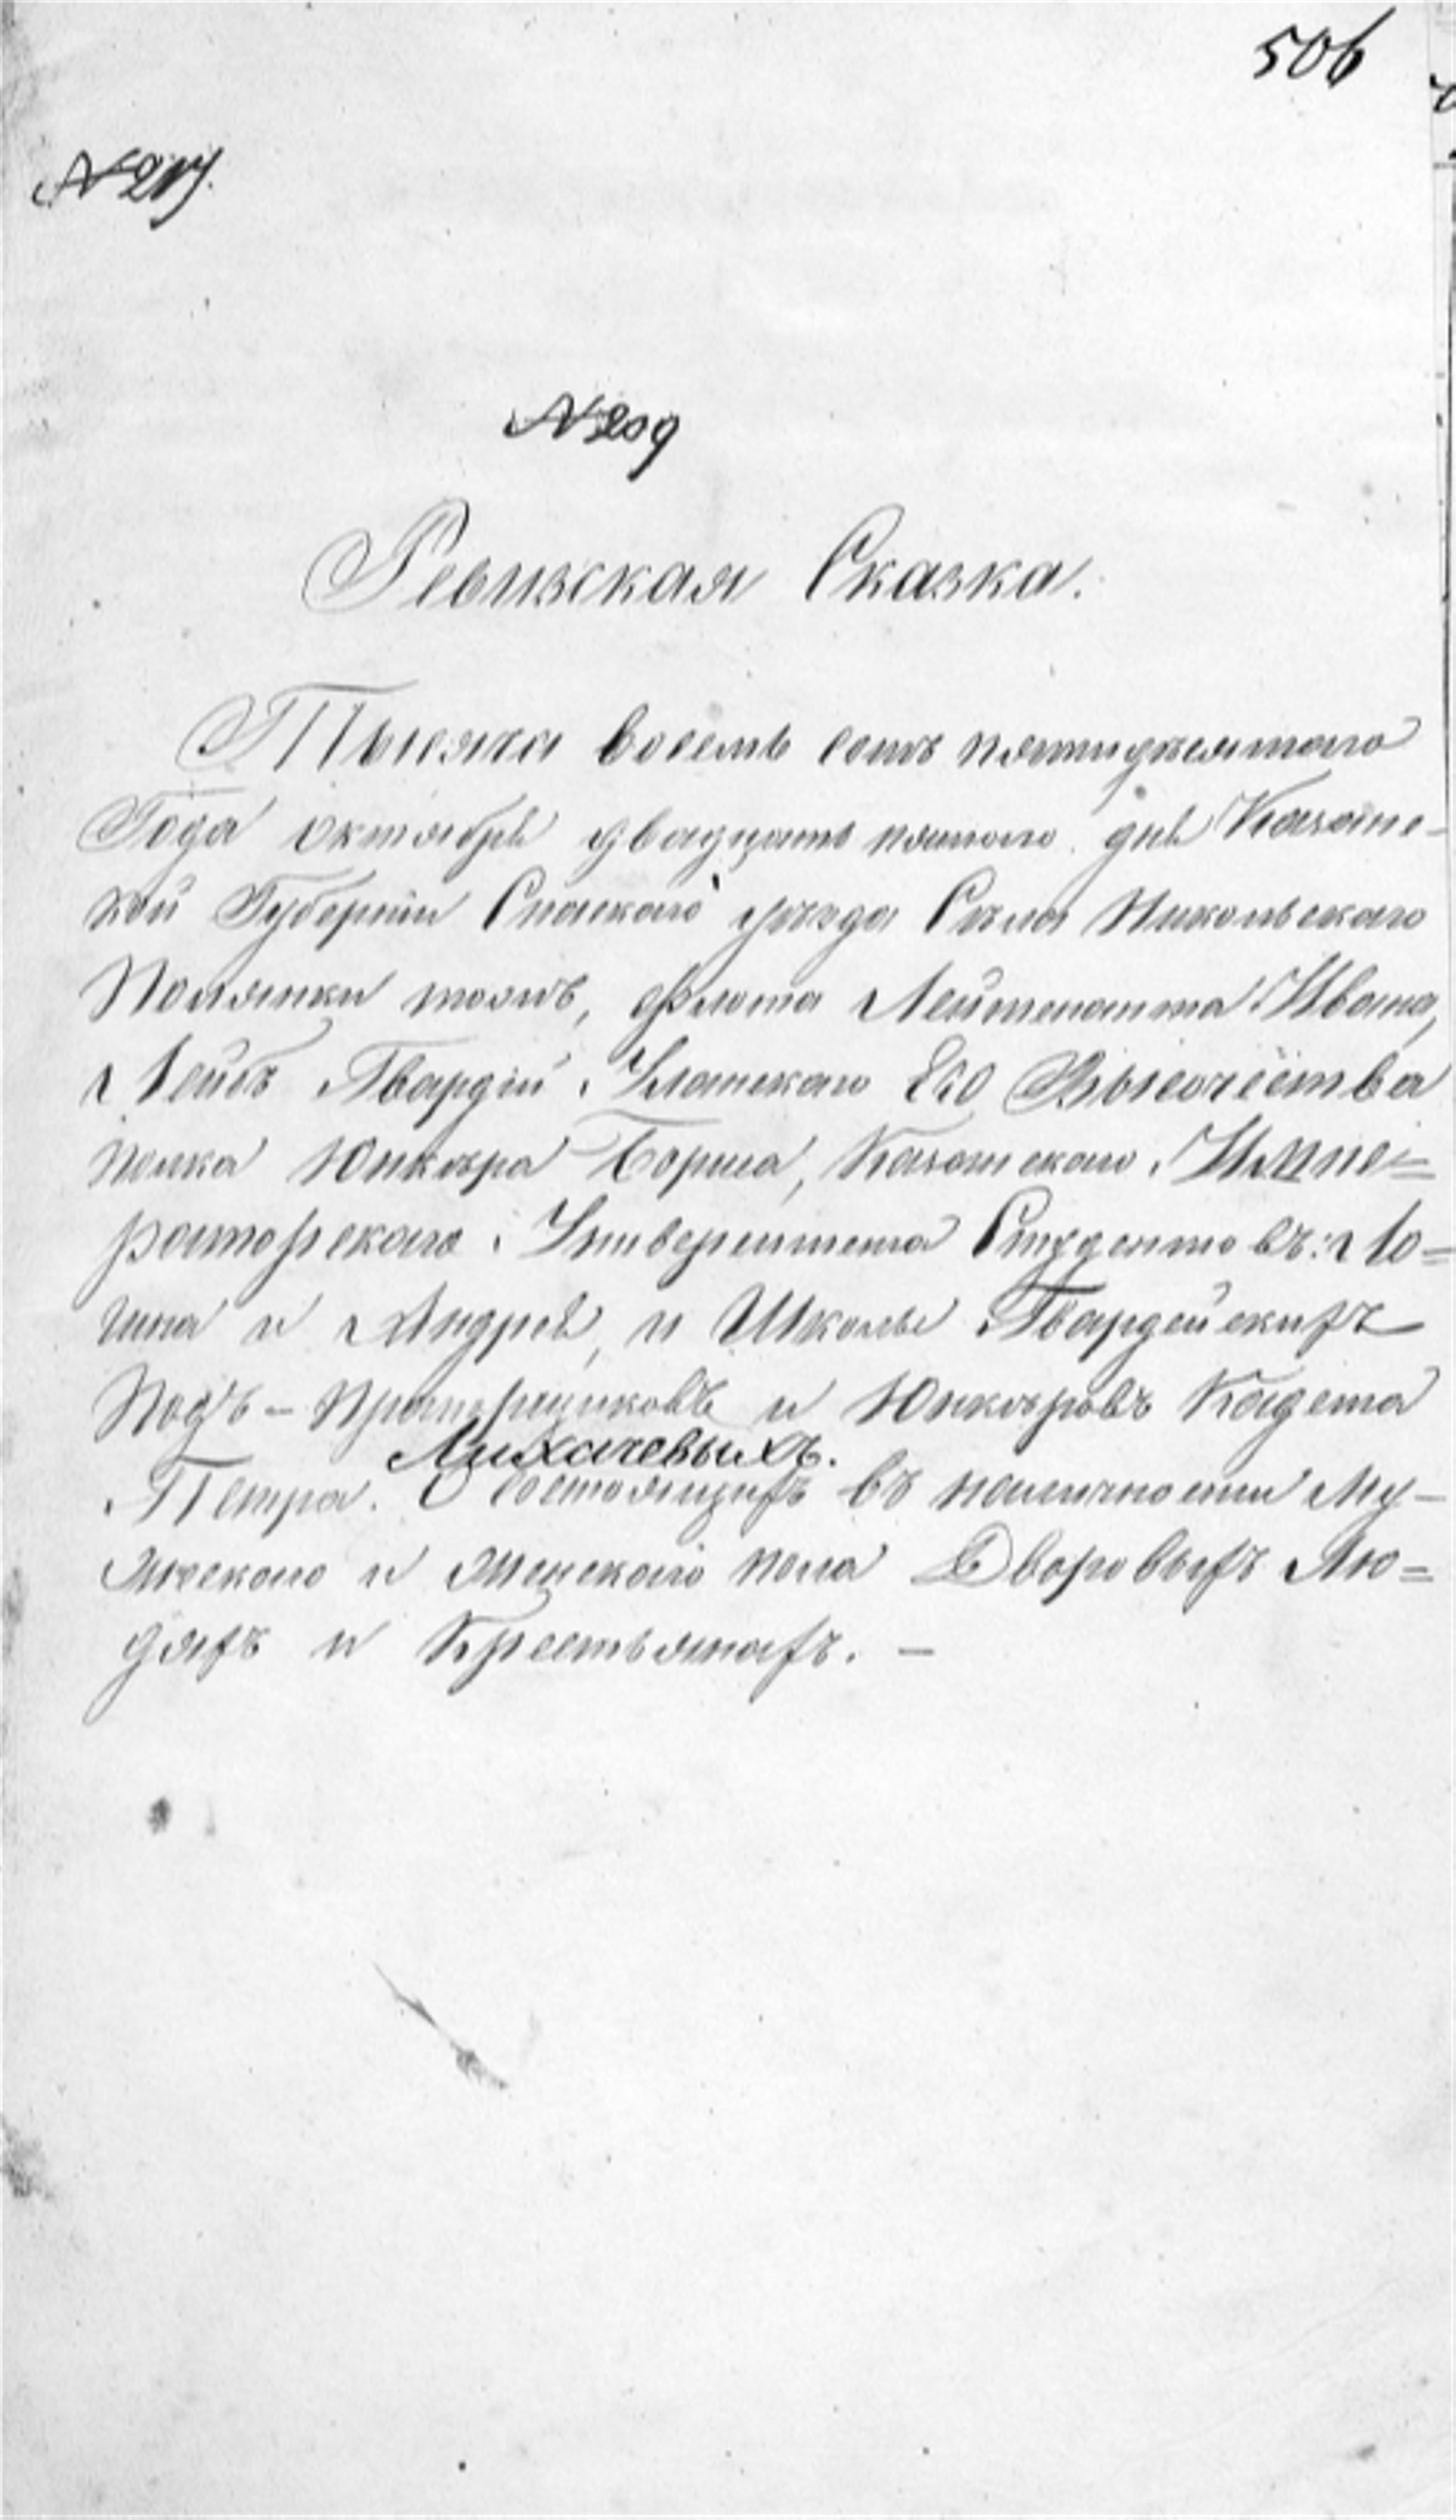 506
№ 217.
№ 209
Ревижская Сказка.
Тысяча восемь сотъ пятидесятаго
Года октября двадцать пятаго дня Казанс-
кой Губерніи Спаскаго уѣзда Села Никольскаго
Полянки тожъ, флота Лейтенанта Ивана,
Лейбъ Гвардіи Уланскаго Его Высочества
полка Юнкера Бориса, Казанскаго Импе=
раторскаго Университета Студентовъ: Ло=
гина и Андрея, и Школы Гвардейскихъ
Подъ-Прапорщиковъ и Юнкеровъ Кадета
Лихачевыхъ.
Петра. О состоящихъ въ наличности Му-
жескаго и Женскаго пола Дворовыхъ Лю=
дяхъ и Крестьянахъ. —